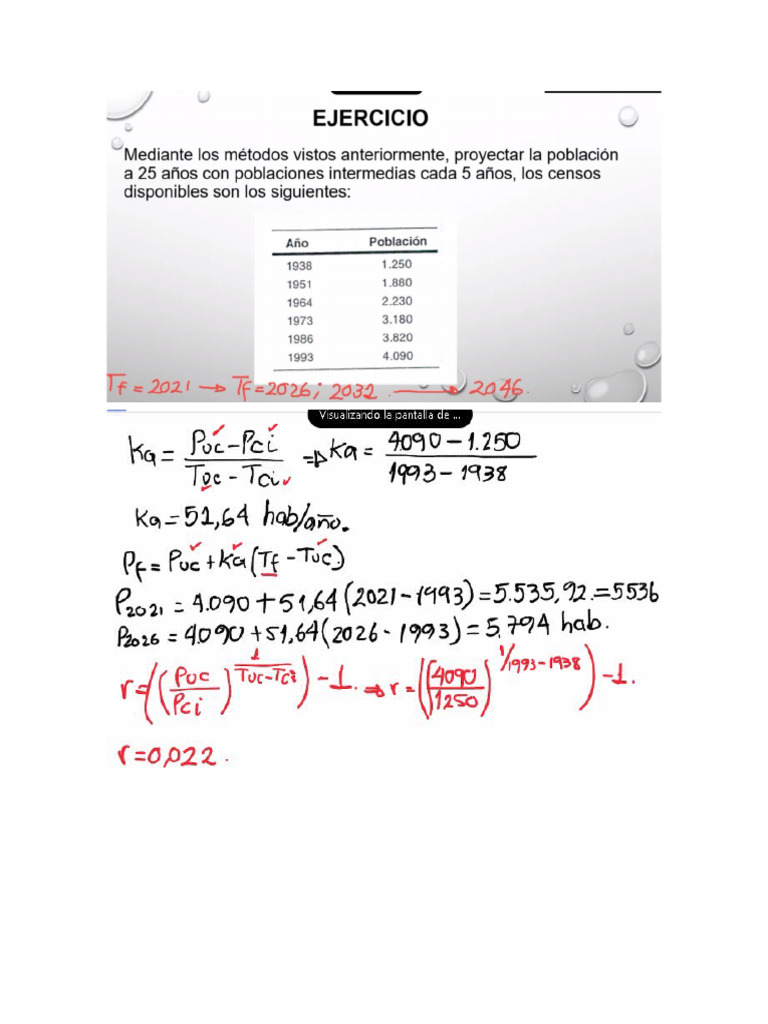 EJERCICIO
Mediante los métodos vistos anteriormente, proyectar la población
a 25 años con poblaciones intermedias cada 5 años, los censos
disponibles son los siguientes:
Año Población
1938 1.250
1951 1.880
1964 2.230
1973 3.180
1986 3.820
1993 4.090
Tf = 2021 → Tf=2026; 2032 → 2046.
Visualizando la pantalla de ...
Ka = (Puc-Pci)/(Tuc-Tci) ⇒ Ka = (4090-1.250)/(1993-1938)
Ka = 51,64 hab/año.
Pf = Puc + Ka(Tf-Tuc)
P2021 = 4.090+51,64(2021-1993)=5.535,92.=5536
P2026 = 4.090+51,64(2026-1993)=5.794 hab.
r=((Puc/Pci)^(1/(Tuc-Tci))) -1. ⇒ r = ((4090/1250)^(1/1993-1938)) -1.
r=0,022.